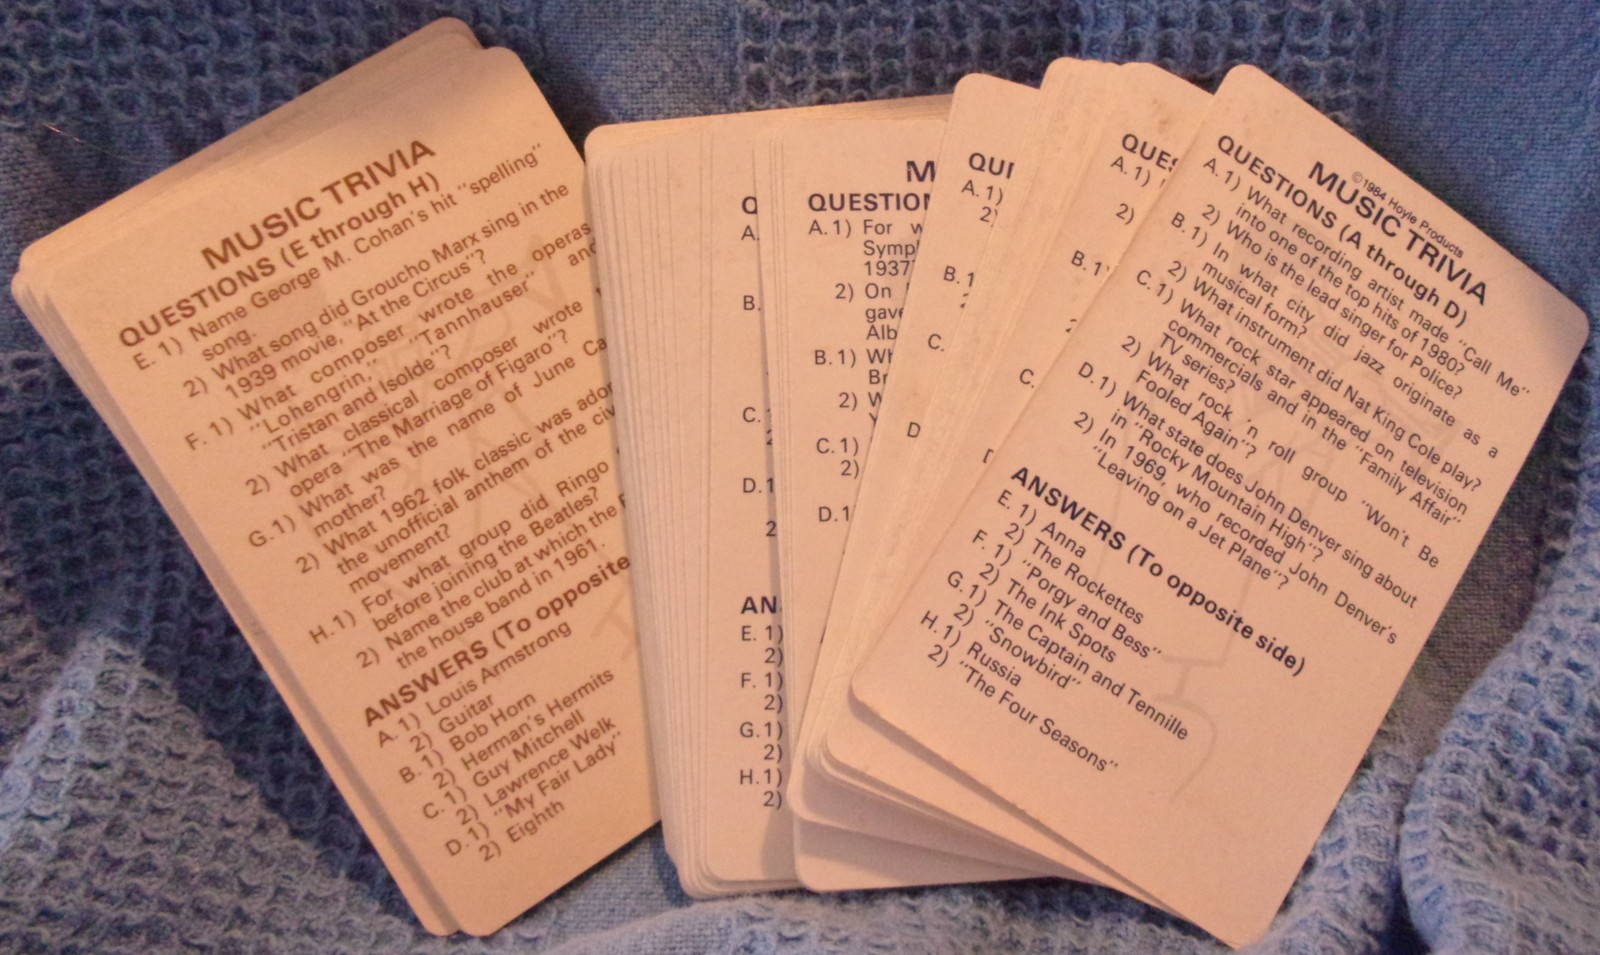 MUSIC TRIVIA
QUESTIONS (E through H)
E. 1) Name George M. Cohan's hit "spelling"
song.
2) What song did Groucho Marx sing in the
1939 movie, "At the Circus"?
F. 1) What composer wrote the operas
"Lohengrin," "Tannhauser" and
"Tristan and Isolde"?
2) What classical composer wrote
opera "The Marriage of Figaro"?
G. 1) What was the name of June Ca
mother?
2) What 1962 folk classic was ado
the unofficial anthem of the civ
movement?
H. 1) For what group did Ringo
before joining the Beatles?
2) Name the club at which the
the house band in 1961.
ANSWERS (To opposite
A. 1) Louis Armstrong
2) Guitar
B. 1) Bob Horn
2) Herman's Hermits
C. 1) Guy Mitchell
2) Lawrence Welk
D. 1) "My Fair Lady"
2) Eighth
Q
A.
B.
C.
2
D. 1
2
AN
E. 1)
2)
F. 1)
2)
G. 1)
2)
H. 1)
2)
M
QUESTION
A. 1) For w
Symp
1937
2) On
gave
Alb
B. 1) Wh
Br
2) W
Y
C. 1)
2)
D. 1
QUE
A. 1)
2)
B. 1
2
C.
D
QUES
A. 1)
2)
B. 1
2
C.
D
©1984 Hoyle Products
MUSIC TRIVIA
QUESTIONS (A through D)
A. 1) What recording artist made "Call Me"
into one of the top hits of 1980?
2) Who is the lead singer for Police?
B. 1) In what city did jazz originate as a
musical form?
2) What instrument did Nat King Cole play?
C. 1) What rock star appeared on television
commercials and in the "Family Affair"
TV series?
2) What rock 'n roll group "Won't Be
Fooled Again"?
D. 1) What state does John Denver sing about
in "Rocky Mountain High"?
2) In 1969, who recorded John Denver's
"Leaving on a Jet Plane"?
ANSWERS (To opposite side)
E. 1) Anna
2) The Rockettes
F. 1) "Porgy and Bess"
2) The Ink Spots
G. 1) The Captain and Tennille
2) "Snowbird"
H. 1) Russia
2) "The Four Seasons"